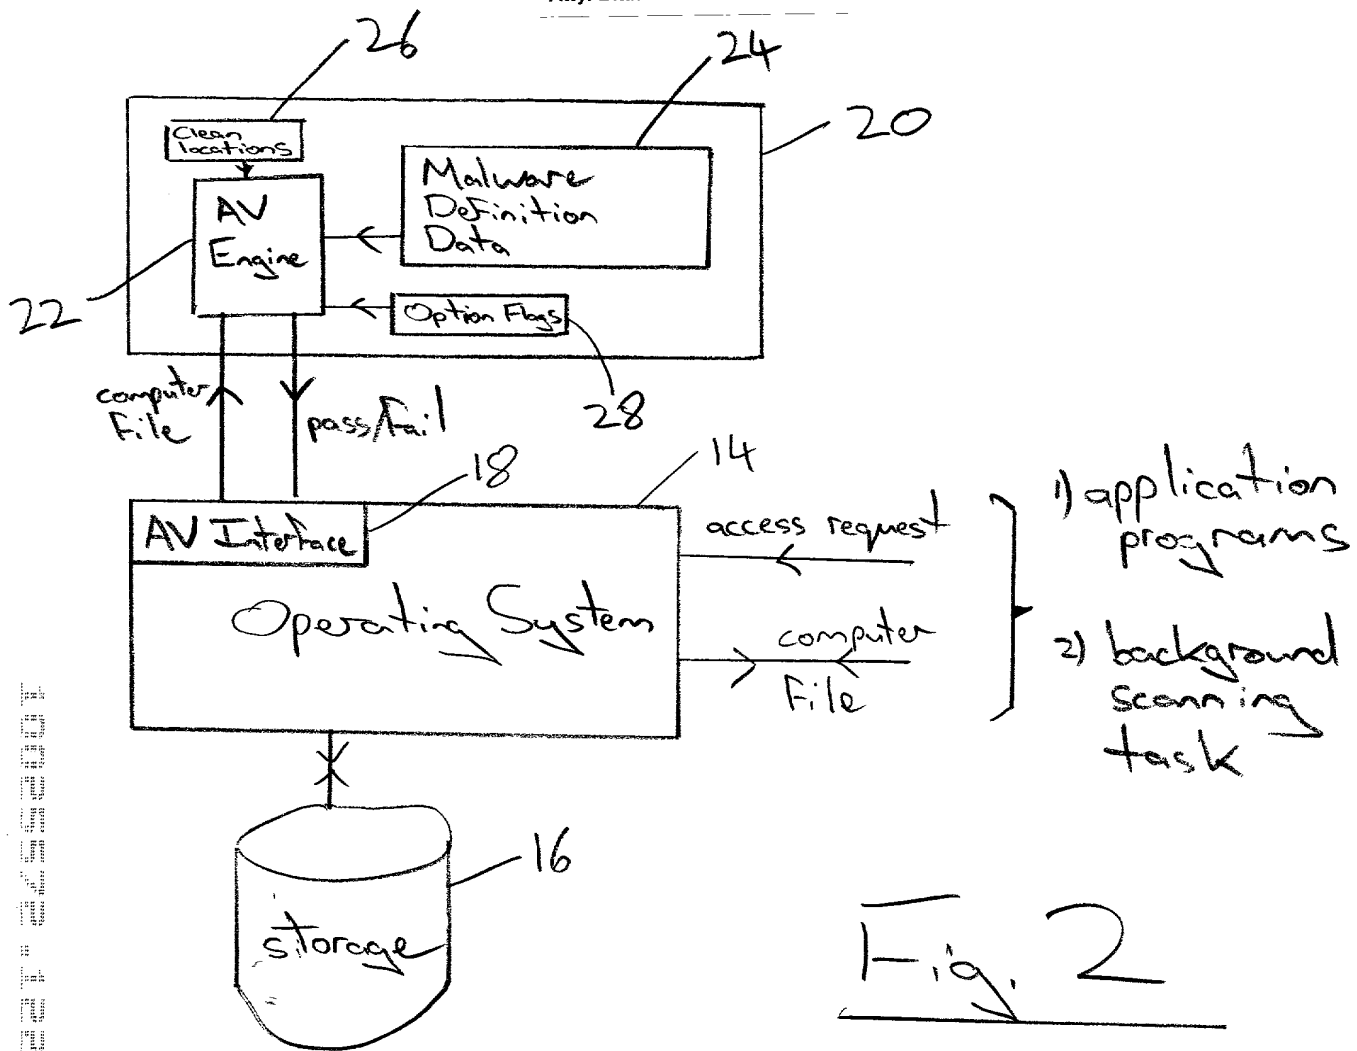 26
24
20
Clean
locations
Malware
Definition
Data
AV
Engine
22
Option Flags
28
computer
File
pass/Fail
18
14
AV Interface
Operating System
access request
computer
File
1) application
programs
2) background
scanning
task
16
storage
Fig. 2
10025572.122